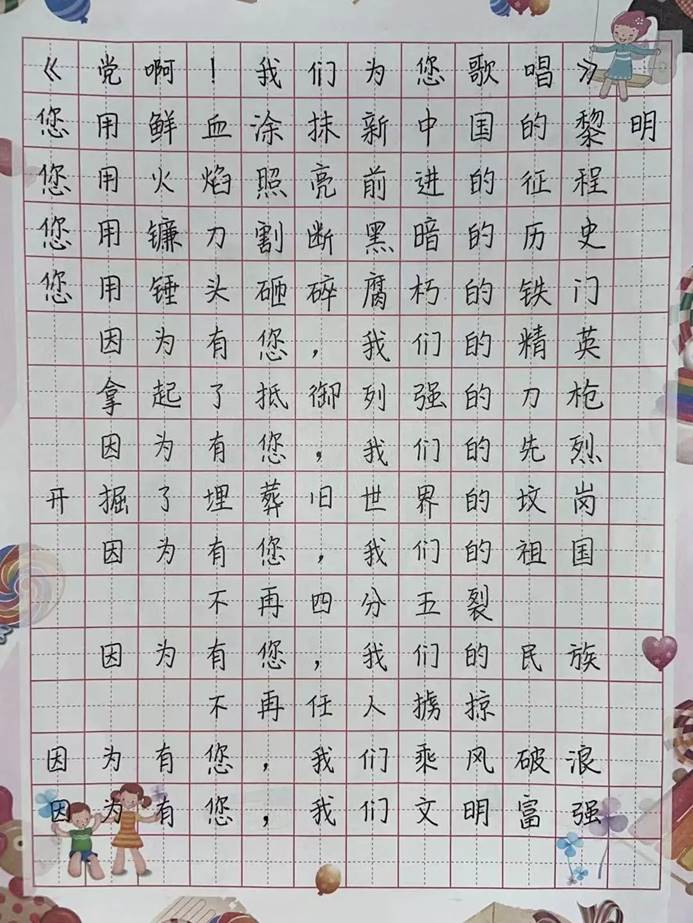 《党啊！我们为您歌唱》
您用鲜血涂抹新中国的黎明
您用火焰照亮前进的征程
您用镰刀割断黑暗的历史
您用锤头砸碎腐朽的铁门
因为有您，我们的精英
拿起了抵御列强的刀枪
因为有您，我们的先烈
开掘了埋葬旧世界的坟岗
因为有您，我们的祖国
不再四分五裂
因为有您，我们的民族
不再任人掳掠
因为有您，我们乘风破浪
因为有您，我们文明富强